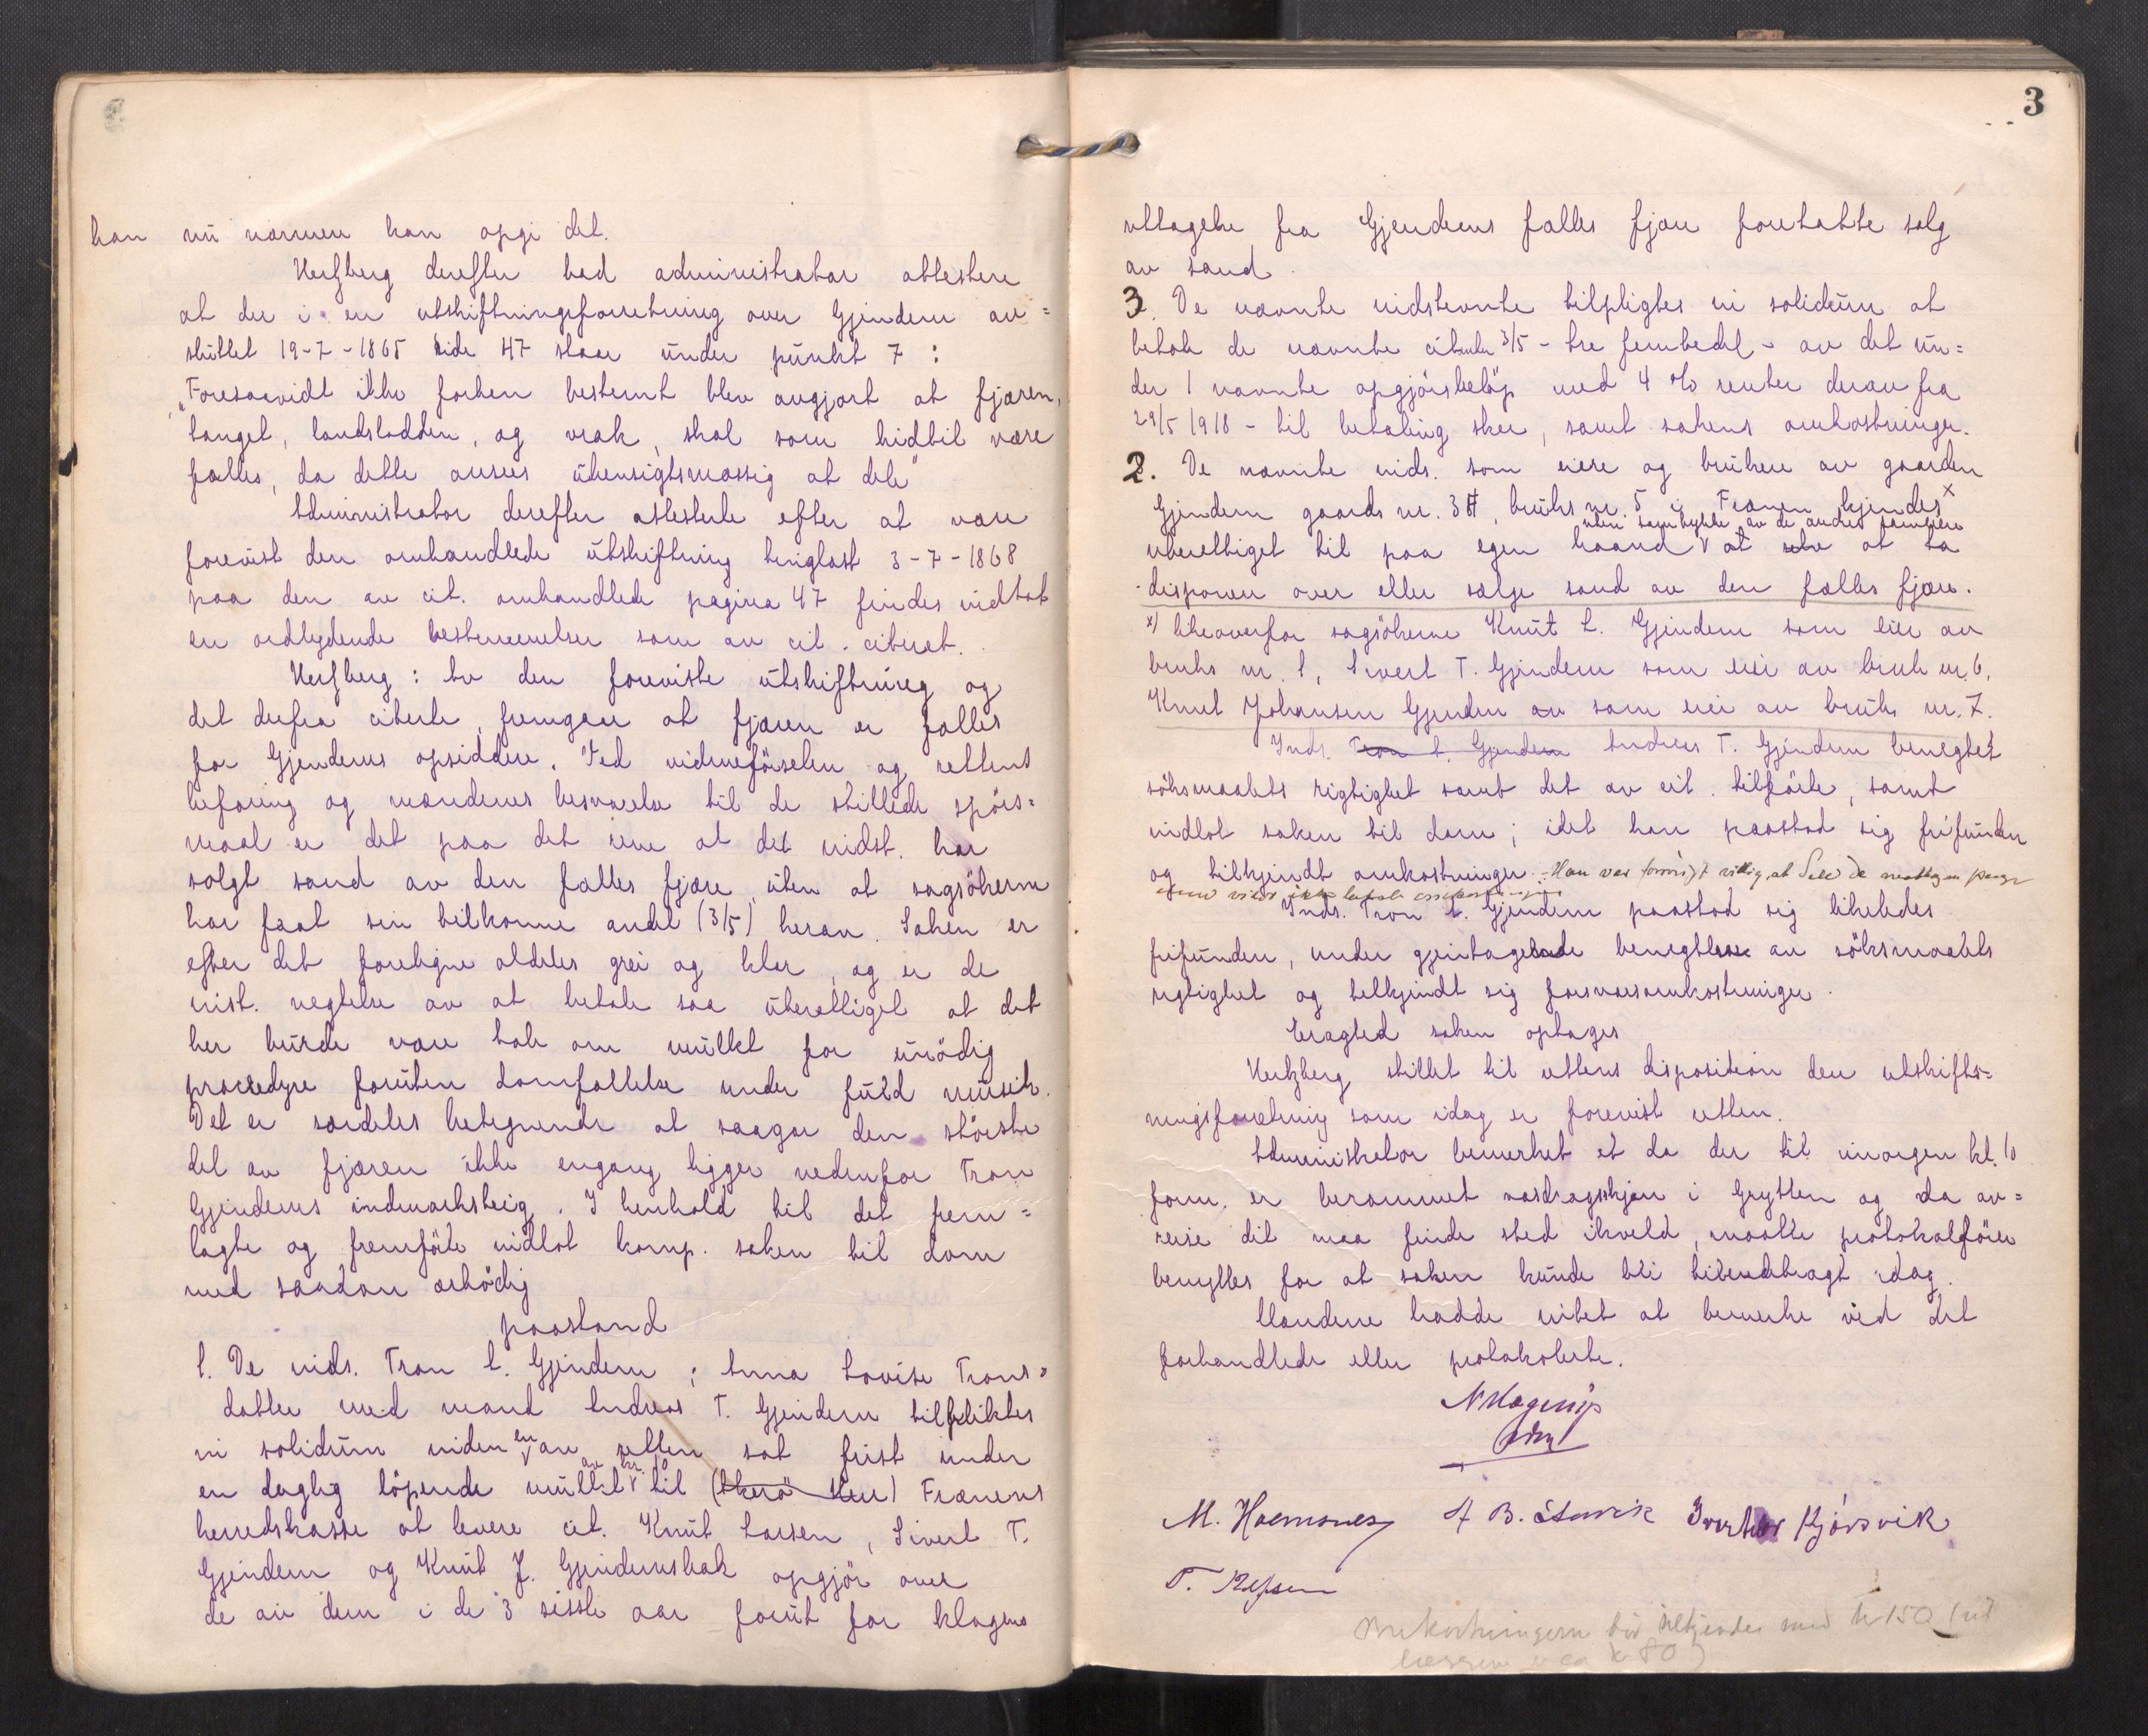 kan nu nærmere kan opgi det.
Hertzberg derefter bad administrator attestere
at der i en utskiftningsforretning over Gjendem av=
sluttet 19-7-1865 side 47 staar under punkt 7:
"Foresaavidt ikke forhen bestemt blev avgjort at fjæren,
tanget, landslodden, og vrak, skal som hidtil være
fælles, da dette ansees uhensigtsmæssig at dele"
Administrator derefter attesterte efter at være
forevist den omhandlede utskiftning tinglæst 3-7-1868
paa den av cit. omhandlede pagina 47 findes indtat
en ordlydende bestemmelse som av cit. citeret.
Hertzberg: Av den foreviste utskiftning og
det derfra citerte, fremgaar at fjæren er fælles
for Gjendems opsiddere. Ved vidneførselen og rettens
befaring og mændenes besvarelse til de stillede spörs=
maal er det paa det rene at det indst. har
solgt sand av den fælles fjære, uten at sagsökerne
har faat sin tilkomne andel (3/5) herav. Saken er
efter det foreligne aldeles grei og klar, og er de
inst. negtelse av at betale saa uberettiget at det
her burde være tale om mulkt for unödig
procedyre foruten domfældelse under fuld musik.
Det er særdeles betegnende at saagar den störste
del av fjæren ikke engang ligger nedenfor Tron
Gjendems indmarksteig. I henhold til det frem=
lagte og fremförte indlot komp. saken til dom
med saadan ærbödig
paastand
1. De inds. Tron L. Gjendem; Anna Lovise Trons=
datter med mand Andreas T. Gjendem tilpliktes
in solidum inden en av retten sat frist under
en daglig löpende mulkt av kr. 10 til (Akerö Kur) Frænens
herredskasse at levere cit. Knut Larsen, Sivert T.
Gjendem og Knut J. Gjendemsbak opgjör over
de av dem i de 3 sisste aar forut for klagens
3
uttagelse fra Gjendems fælles fjære foretatte salg
av sand.
3. De nævnte indstevnte tilpligtes in solidum at
betale de nævnte citanter 3/5 - tre femtedel - av det un=
der 1 nævnte opgjörsbelöp med 4 % renter derav fra
29/5 1918 - til betaling sker, samt sakens omkostninger.
2. De nævnte inds. som eiere og brukere av gaarden
Gjendem gaards nr. 34, bruks nr. 5 i Frænen kjendes x
uten samtykke av de andre sameiere
uberettiget til paa egen haand at selv at ta
disponere over eller sælge sand av den fælles fjære.
x) likeoverfor sagsökerne Knut L. Gjendem som eier av
bruks nr. 1, Sivert T. Gjendem som eier av bruk nr. 6,
Knut Johansen Gjendem av som eier av bruks nr. 7.
Inds. Tron L. Gjendem Andreas T. Gjendem benegtet
söksmaalets rigtighet samt det av cit. tilförte, samt
indlot saken til dom; idet han paastod sig frifunden
og tilkjendt omkostninger. Han var forövrigt villig at dele de mottagne penge
men vilde ikke betale omkostninger
Inds. Tron L. Gjendem paastod sig likeledes
frifunden, under gjentagelse benegtelse av söksmaalets
rigtighet og tilkjendt sig forsvarsomkostninger.
Eragted saken optages
Hertzberg stillet til rettens disposition den utskift=
ningsforretning som idag er forevist retten.
Administrator bemerket at da der til imorgen kl. 10
form. er berammet vasdragsskjön i Grytten og da av=
reise dit maa finde sted ikveld, maatte protokolförer
benyttes for at saken kunde bli tilendebragt idag.
Mændene hadde intet at bemerke ved det
forhandlede eller protokolerte.
N Hagerup
adm
M. Harnesnes A B. Stavik Iverhar Kjörsvik
T. Refsnes
Omkostningerne bör tilkjendes med kr 150 (ut
læggene er ca kr 80)